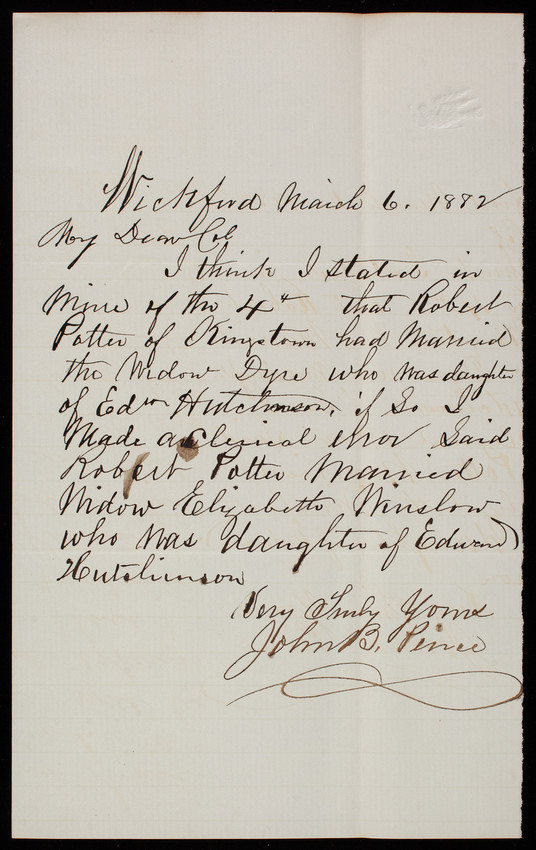 Wickford March 6. 1882
My Dear Col
I think I stated in
mine of the 4th that Robert
Potter of Kingstown had Married
the Widow Dyre who was daughter
of Edwd Hutchinson, if So I
Made a Clerical error Said
Robert Potter Married
Widow Elizabeth Winslow
who was daughter of Edward
Hutchinson
Very Truly Yours
John B. Pierce